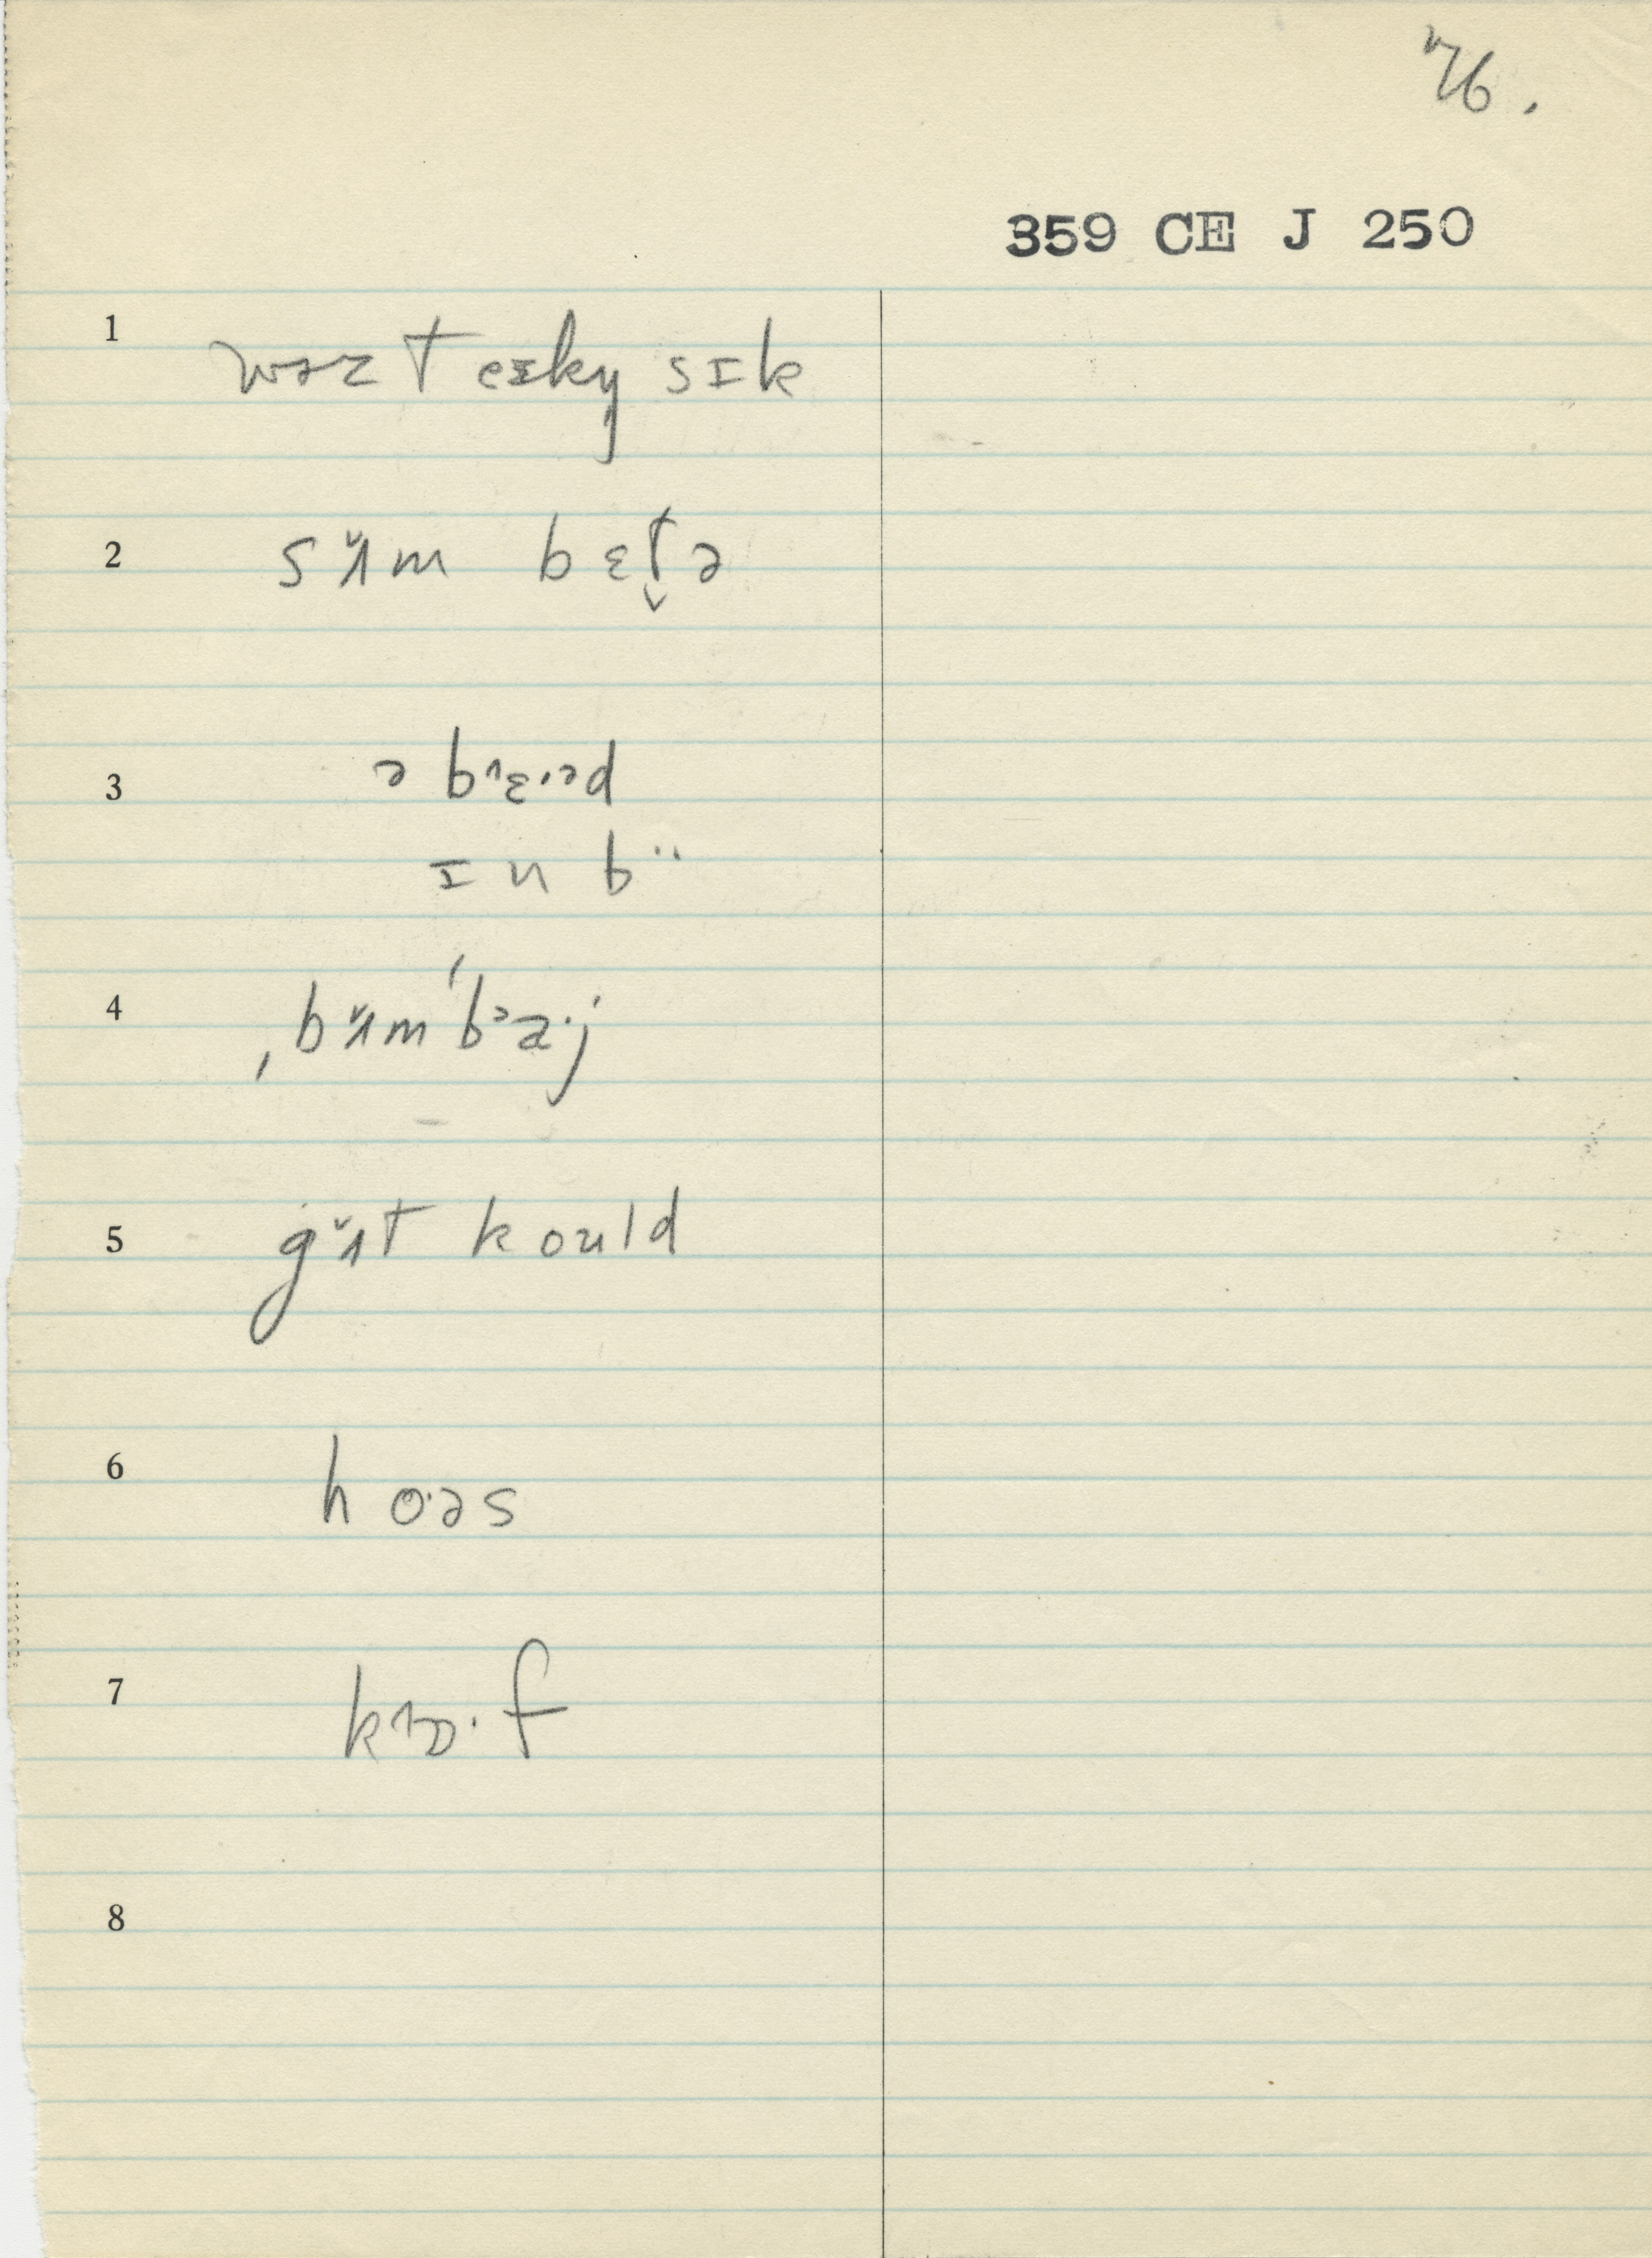 76.
359 CE J 250
1 wəz teɪkŋ sɪk
2 sʌ̌m bɛt̬ə
3 ə brɛ·əd
ɪn b··
4 ˌbʌ̌mˈbᵊa·j
5 gʌ̌t kould
6 ho·əs
7 krɔ·f
8